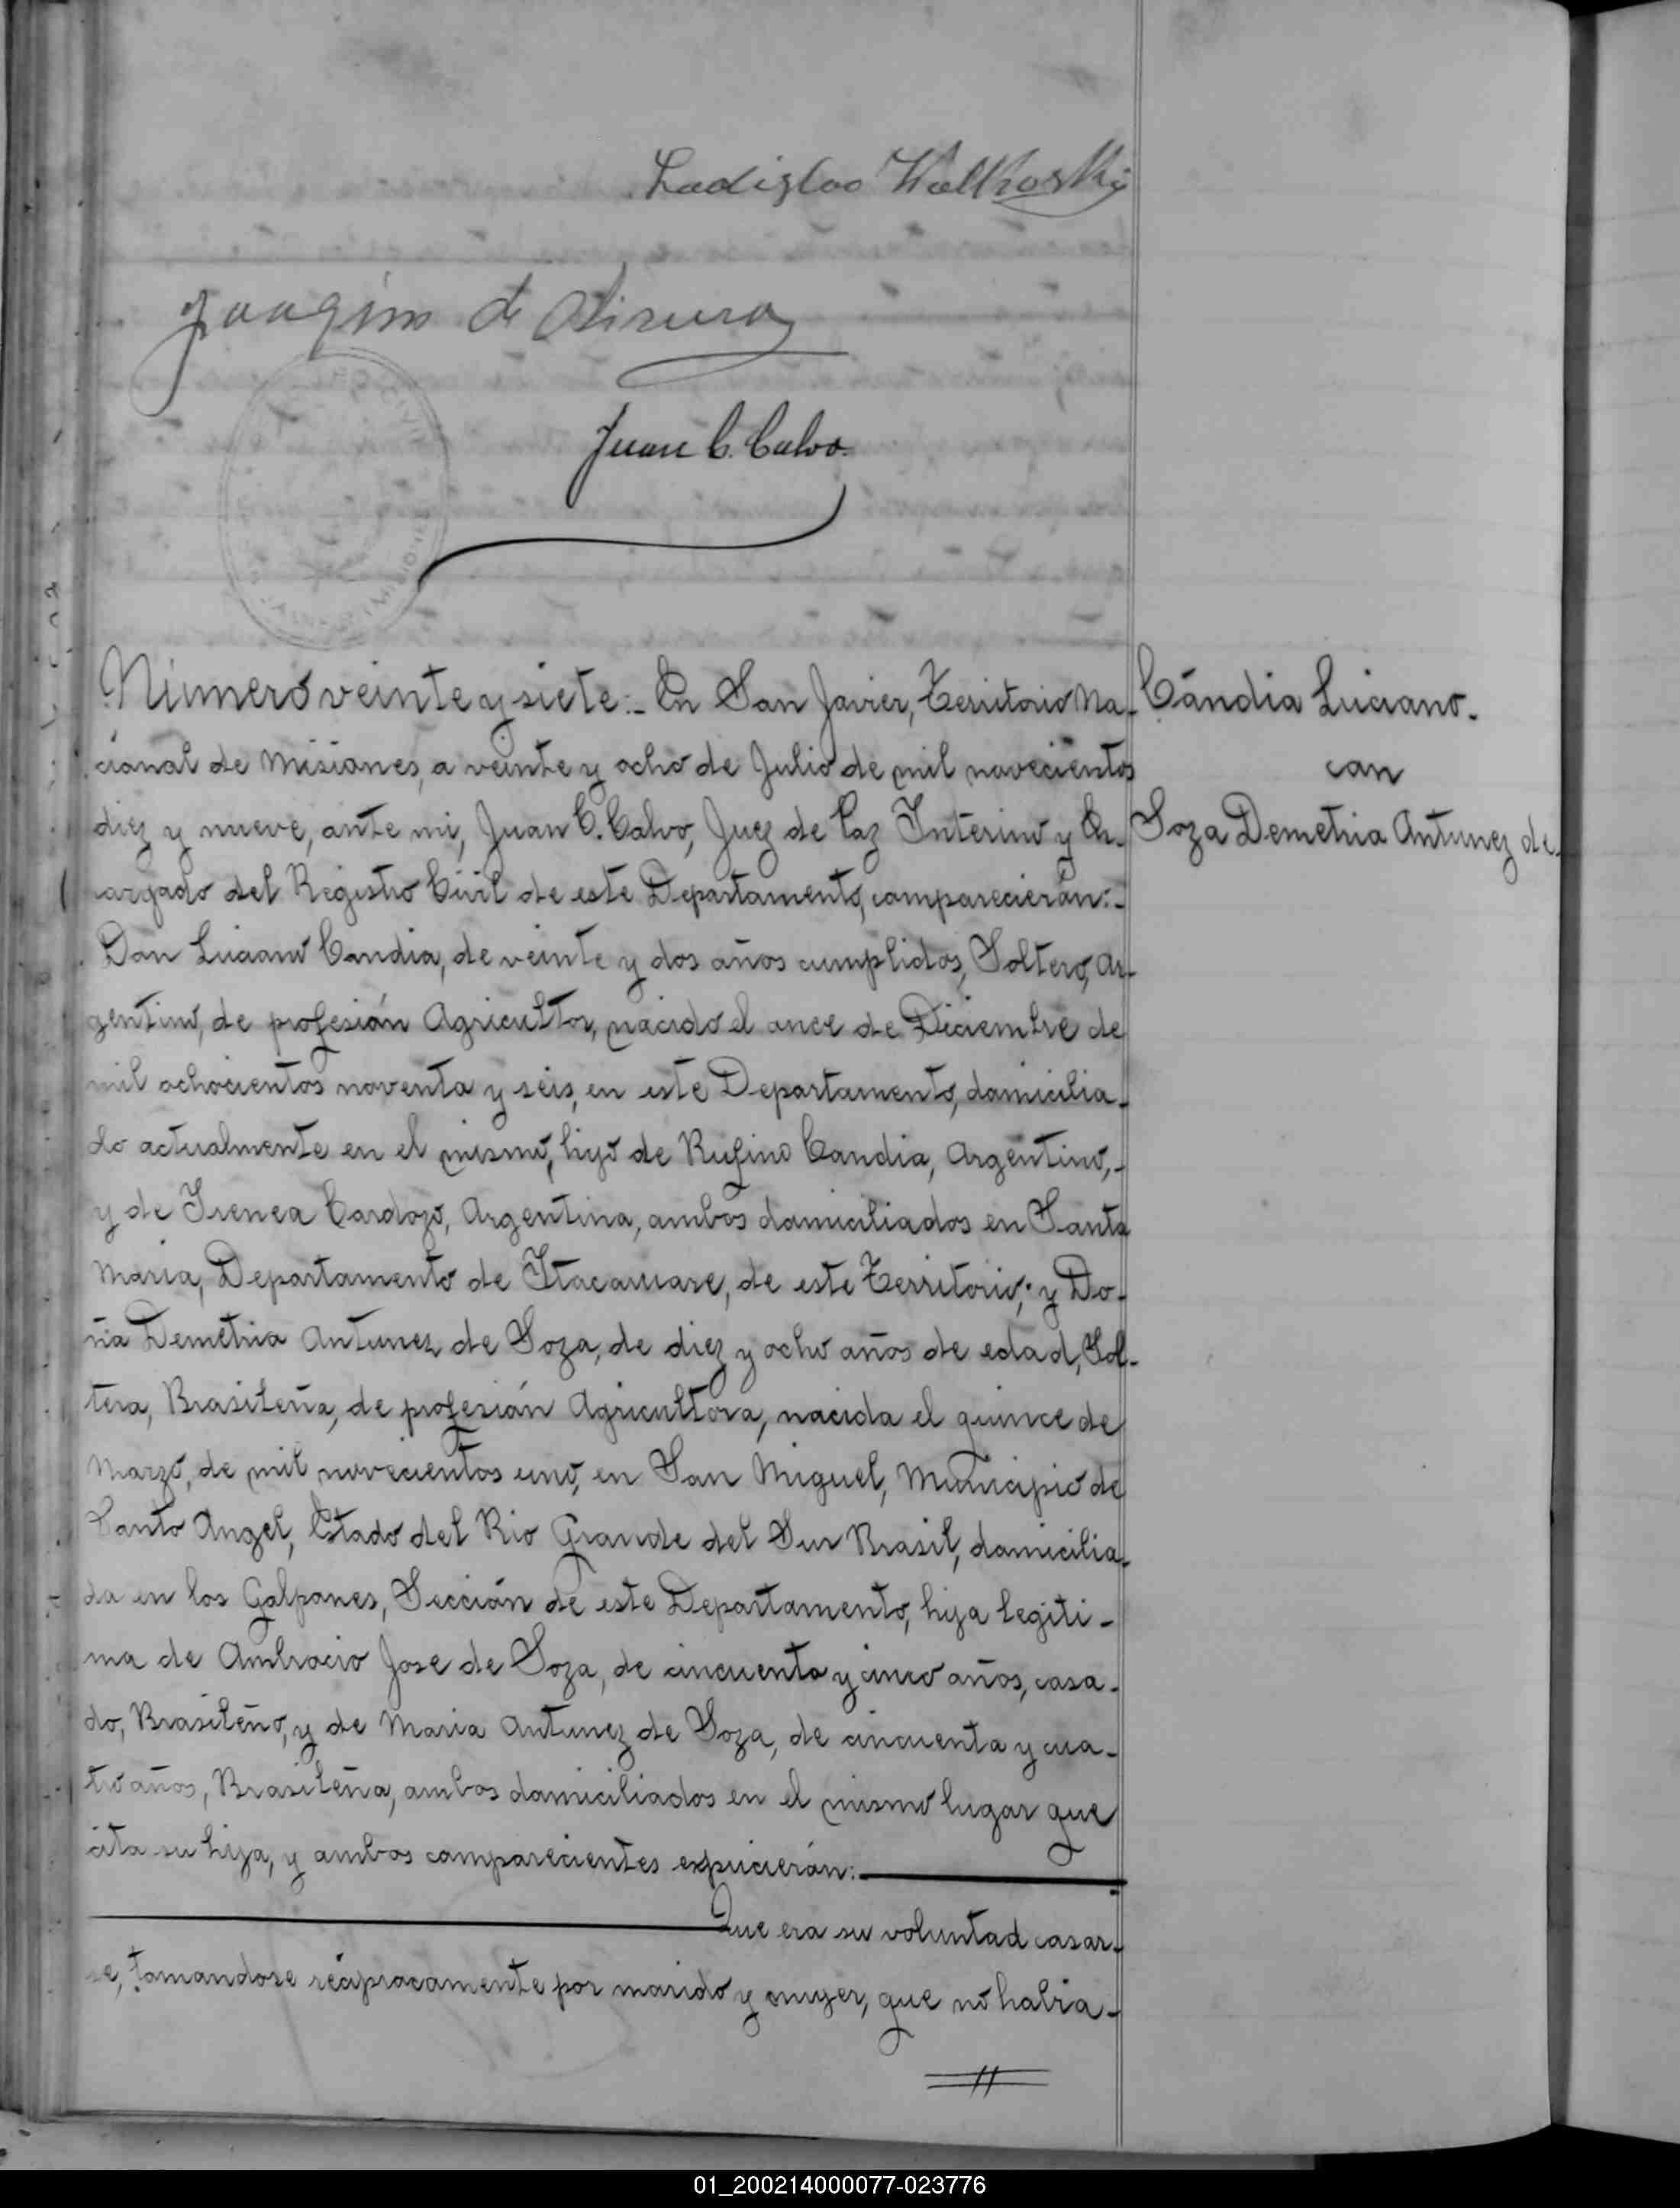 Ladislao Walkoski
Joaqim de Olivera
Juan C. Calvo
Número veinte y siete:- En San Javier, Territorio Na-
cional de Misiones, a veinte y ocho de Julio de mil novecientos
diez y nueve, ante mi, Juan C. Calvo, Juez de Paz Interino y En-
cargado del Registro Civil de este Departamento, comparecierón:-
Don Luciano Candia, de veinte y dos años cumplidos, Soltero, Ar-
gentino, de profesión Agricultor, nacido el once de Diciembre de
mil ochocientos noventa y seis, en este Departamento, domicilia-
do actualmente en el mismo, hijo de Rufino Candia, Argentino,-
y de Irenea Cardozo, Argentina, ambos domiciliados en Santa
Maria, Departamento de Itacaruare, de este Territorio; y Do-
ña Demetria Antunez de Soza, de diez y ocho años de edad, Sol-
tera, Brasileña, de profesión Agricultora, nacida el quince de
Marzo, de mil novecientos uno, en San Miguel, Municipio de
Santo Angel, Estado del Rio Grande del Sur Brasil, domicilia-
da en los Galpones, Sección de este Departamento, hija legiti-
ma de Ambrocio Jose de Soza, de cincuenta y cinco años, casa-
do, Brasileño, y de Maria Antunez de Soza, de cincuenta y cua-
tro años, Brasileña, ambos domiciliados en el mismo lugar que
cita su hija, y ambos comparecientes expucierón:
Que era su voluntad casar-
se, tomandose réciprocamente por marido y mujer, que no habia-
Cándia Luciano.
con
Soza Demetria Antunez de.
01_200214000077-023776